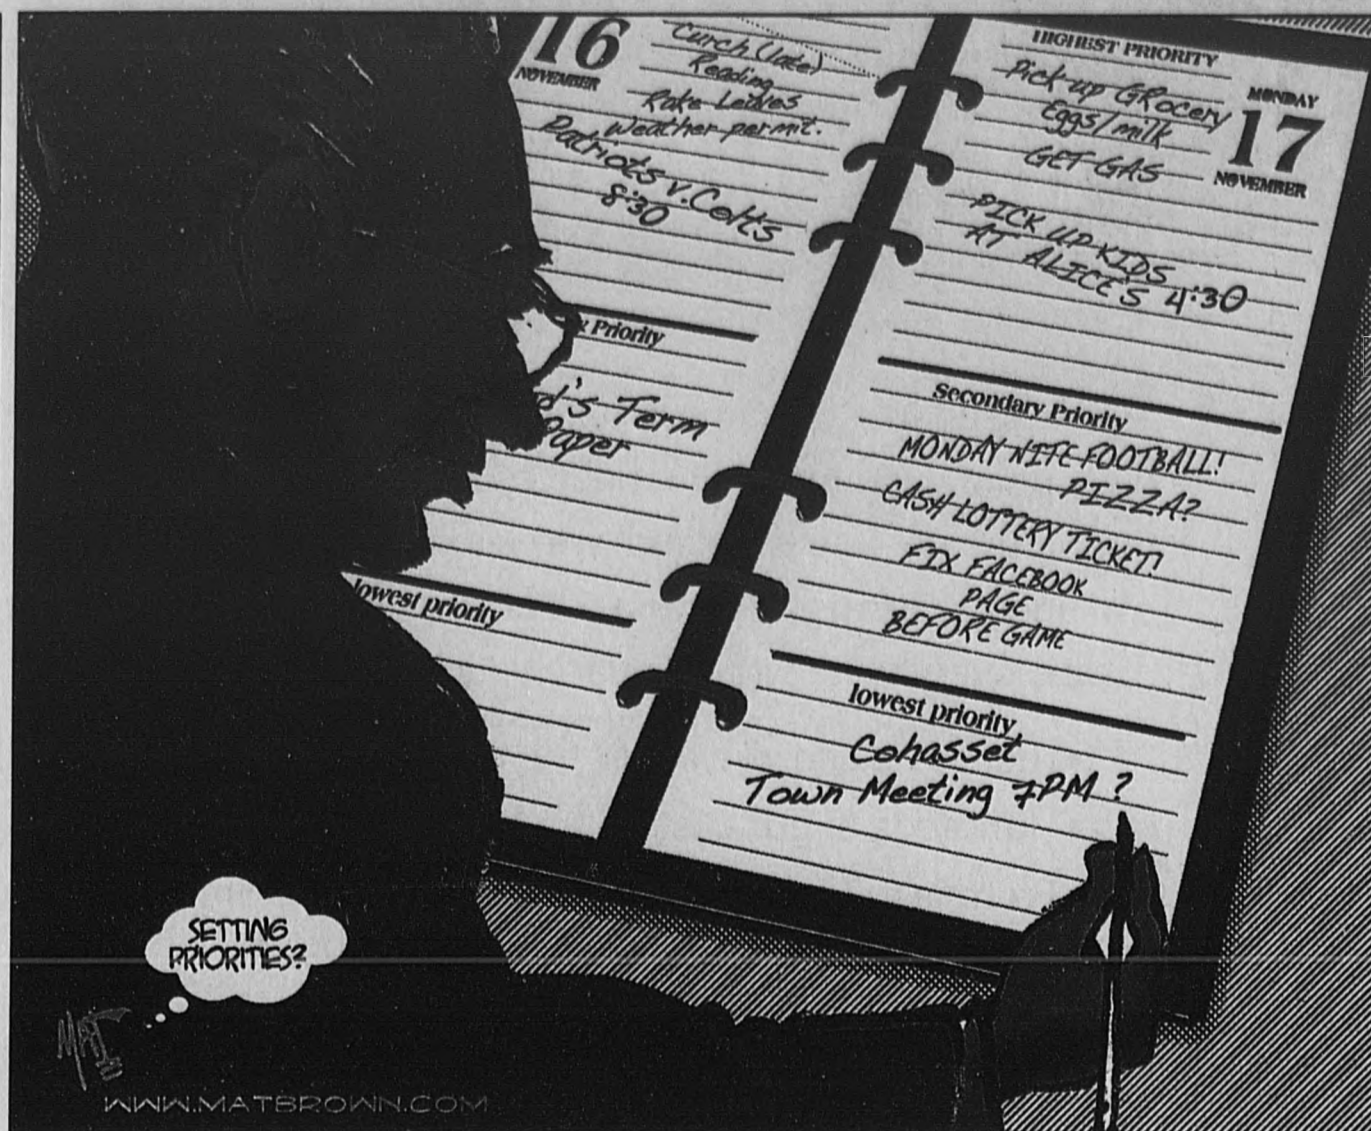 16
NOVEMBER
Curch (late)
Reading
Rake Leaves
Weather permit.
Patriots v. Colts
8:30
Priority
Term
Paper
lowest priority
HIGHEST PRIORITY
MONDAY
17
NOVEMBER
Pick-up GRocery
Eggs/milk
GET GAS
PICK UP KIDS
AT ALICE'S 4:30
Secondary Priority
MONDAY NITE FOOTBALL!
PIZZA?
CASH LOTTERY TICKET!
FIX FACEBOOK
PAGE
BEFORE GAME
lowest priority
Cohasset
Town Meeting 7PM ?
SETTING
PRIORITIES?
MAT
WWW.MATBROWN.COM